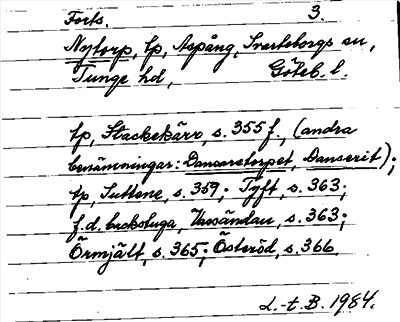 Forts. 3.
Nytorp, tp, Aspång, Svarteborgs sn,
Tunge hd, Göteb. l.
tp, Stackekärr, s. 355 f., (andra
benämningar: Dansaretorpet, Danserit);
tp, Suttene, s. 359; Tyft, s. 363;
f.d. backstuga, Vassändan, s. 363;
Örmjält, s. 365; Österöd, s. 366
L.-t. B. 1984.